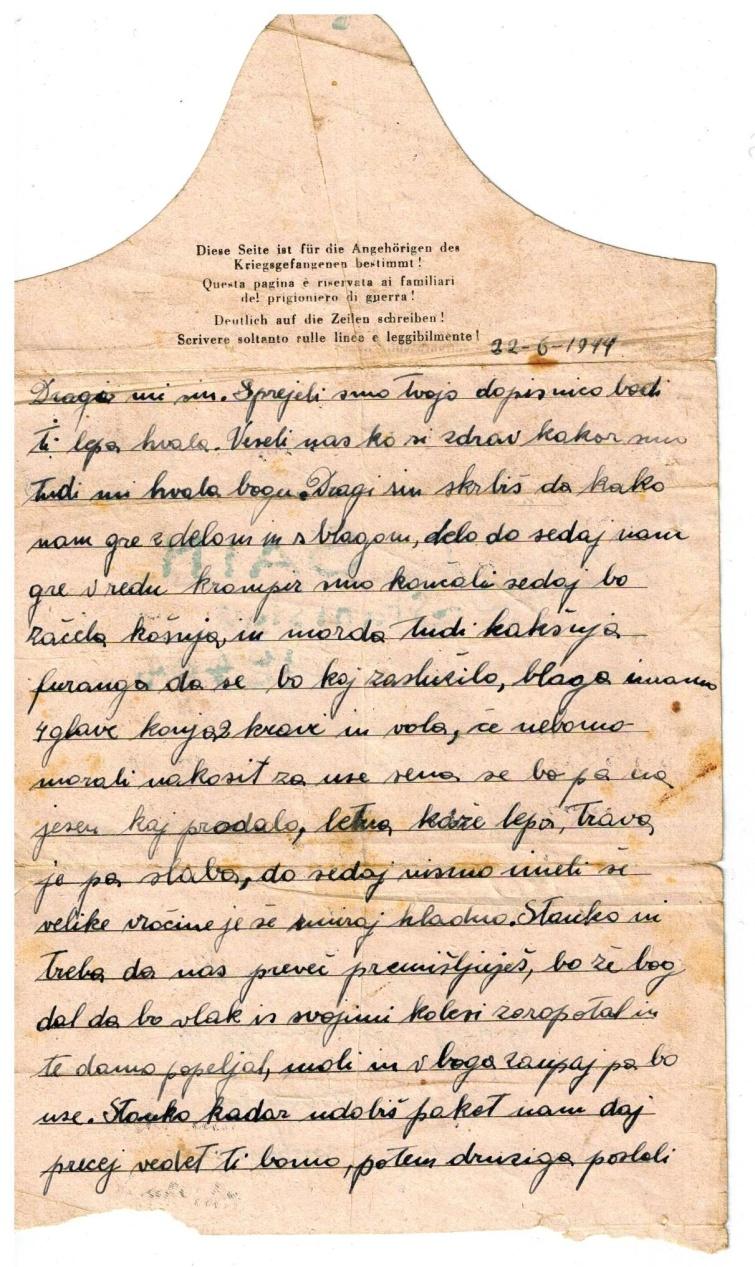 Diese Seite ist für die Angehörigen des
Kriegsgefangenen bestimmt!
Questa pagina è riservata ai familiari
del prigioniero di guerra!
Deutlich auf die Zeilen schreiben!
Scrivere soltanto rulle linee e leggibilmente!
22-6-1944
Dragi mi sin. Sprejeli smo tvojo dopisnico bodi
ti lepa hvala. Veseli nas ko si zdrav kakor smo
tudi mi hvala bogu. Dragi sin skrbiš da kako
nam gre z delom in s blagom, delo do sedaj nam
gre v redu krompir smo končali sedaj bo
začela košnja, in morda tudi kakšnja
furanga da se bo kaj zaslužilo, blaga imamo
4 glave konja 2 krave in vola, če nebomo
morali nakosit za use sena se bo pa na
jesen kaj prodalo, letna kaže lepa, trava
je pa slaba, do sedaj nismo imeli še
velike vročine je še zmiraj hladno. Stanko ni
treba da nas preveč premišljuješ, bo že bog
dal da bo vlak is svojimi kolesi zaropotal in
te damo popeljal, moli in v boga zaupaj pa bo
use. Stanko kadar udobiš paket nam daj
precej vedet ti bomo, potem druziga poslali